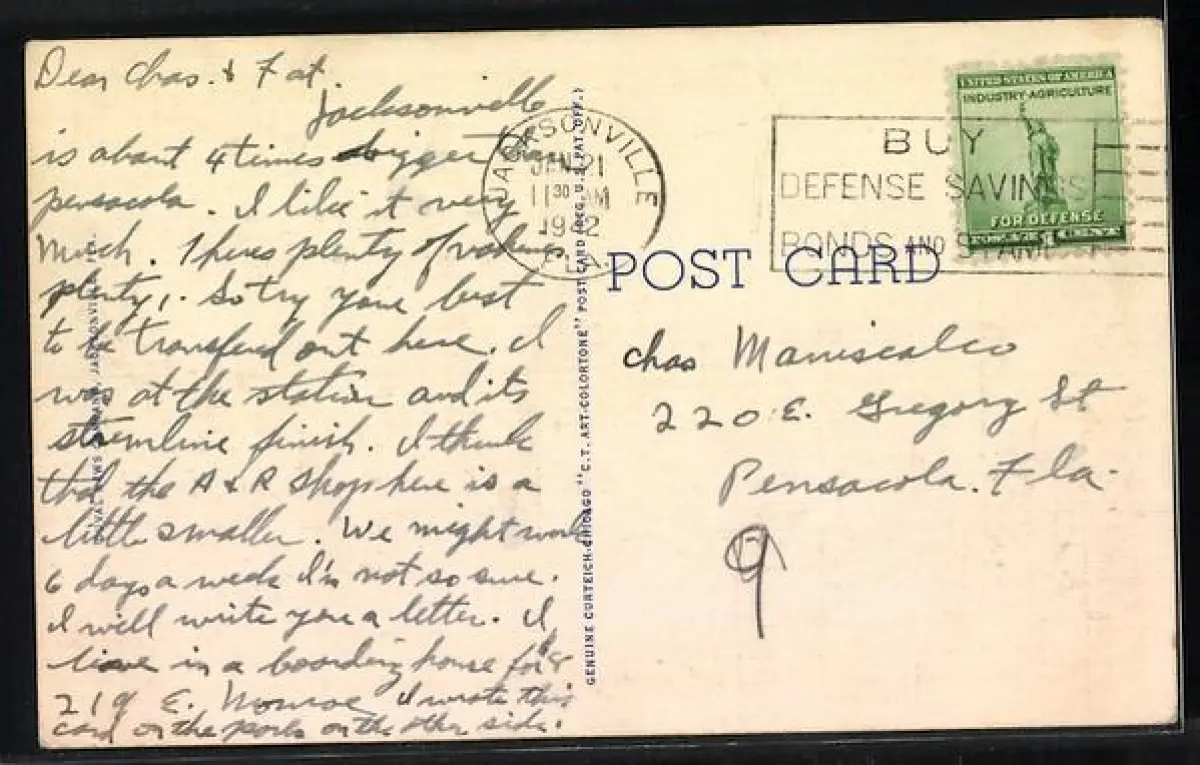 Dear Chas. & Fat.
Jacksonville
is about 4 times bigger than
pensacola. I like it very
much. Theres plenty of
plenty,. So try your best
to be transferd out here. I
was at the station and its
stremline finish. I think
that the A & R shop here is a
little smaller. We might work
6 days a week I'm not so sure.
I will write you a letter. I
live in a boarding house for $8
219 E. Monroe I wrote this
card on the on the other side.
GENUINE CURTEICH-CHICAGO "C.T. ART-COLORTONE" POST CARD (REG. U.S. PAT. OFF.)
JACKSONVILLE
JAN 21
11 30 AM
1942
FLA
BUY
DEFENSE SAVINGS
BONDS AND STAMPS
UNITED STATES OF AMERICA
INDUSTRY-AGRICULTURE
FOR DEFENSE
1 CENT
POST CARD
Chas Maniscalco
220 E. Gregory St
Pensacola. Fla.
9